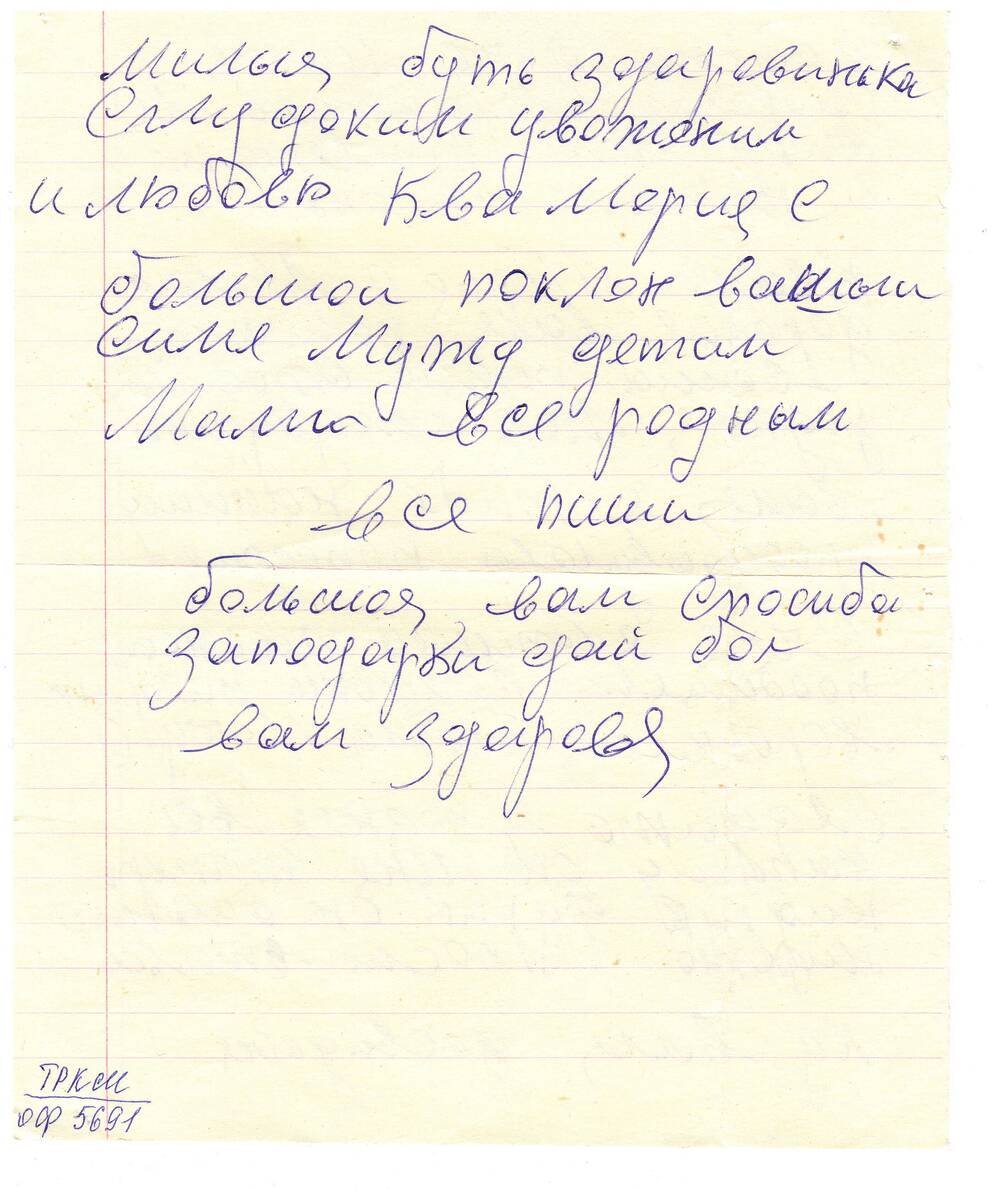 милыя буть здаровинька
Сглу доким уважением
и любовюКва Мария С
большои поклон вашыи
Симе Мужу детям
Мами все родным
все пиши
большоя вам спосиба
заподарки дай бог
вам здаровя
ТРКМ
ОФ 5691